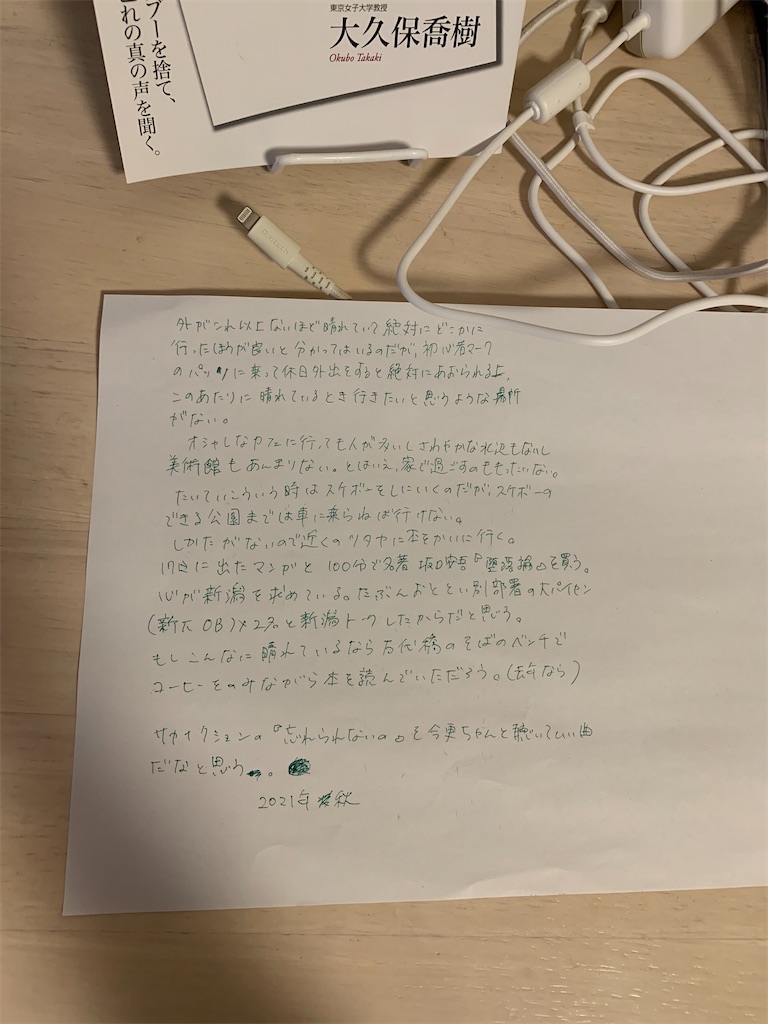 ブーを捨て、
れの真の声を聞く。
東京女子大学教授
大久保喬樹
Okubo Takaki
外がこれ以上ないほど晴れていて絶対にどこかに
行ったほうが良いと分かってはいるのだが、初心者マーク
のパッソに乗って休日外出をすると絶対にあおられる上、
このあたりに晴れているとき行きたいと思うような場所
がない。
オシャレなカフェに行っても人が多いしさわやかな水辺もないし
美術館もあんまりない。とはいえ、家で過ごすのももったいない。
たいていこういう時はスケボーをしにいくのだが、スケボーの
できる公園までは車に乗らねば行けない。
しかたがないので近くのツタヤに本をかいに行く。
に出たマンガと 100分で名著 坂口安吾『堕落論』を買う。
心が新潟を求めている。たぶんおととい別部署の大パイセン
(新大OB)×2名と新潟トークしたからだと思う。
もしこんなに晴れているなら万代橋のそばのベンチで
コーヒーをのみながら本を読んでいただろう。(去年なら)
サカナクションの『忘れられないの』を今更ちゃんと聴いていい曲
だなと思う。
2021年 秋